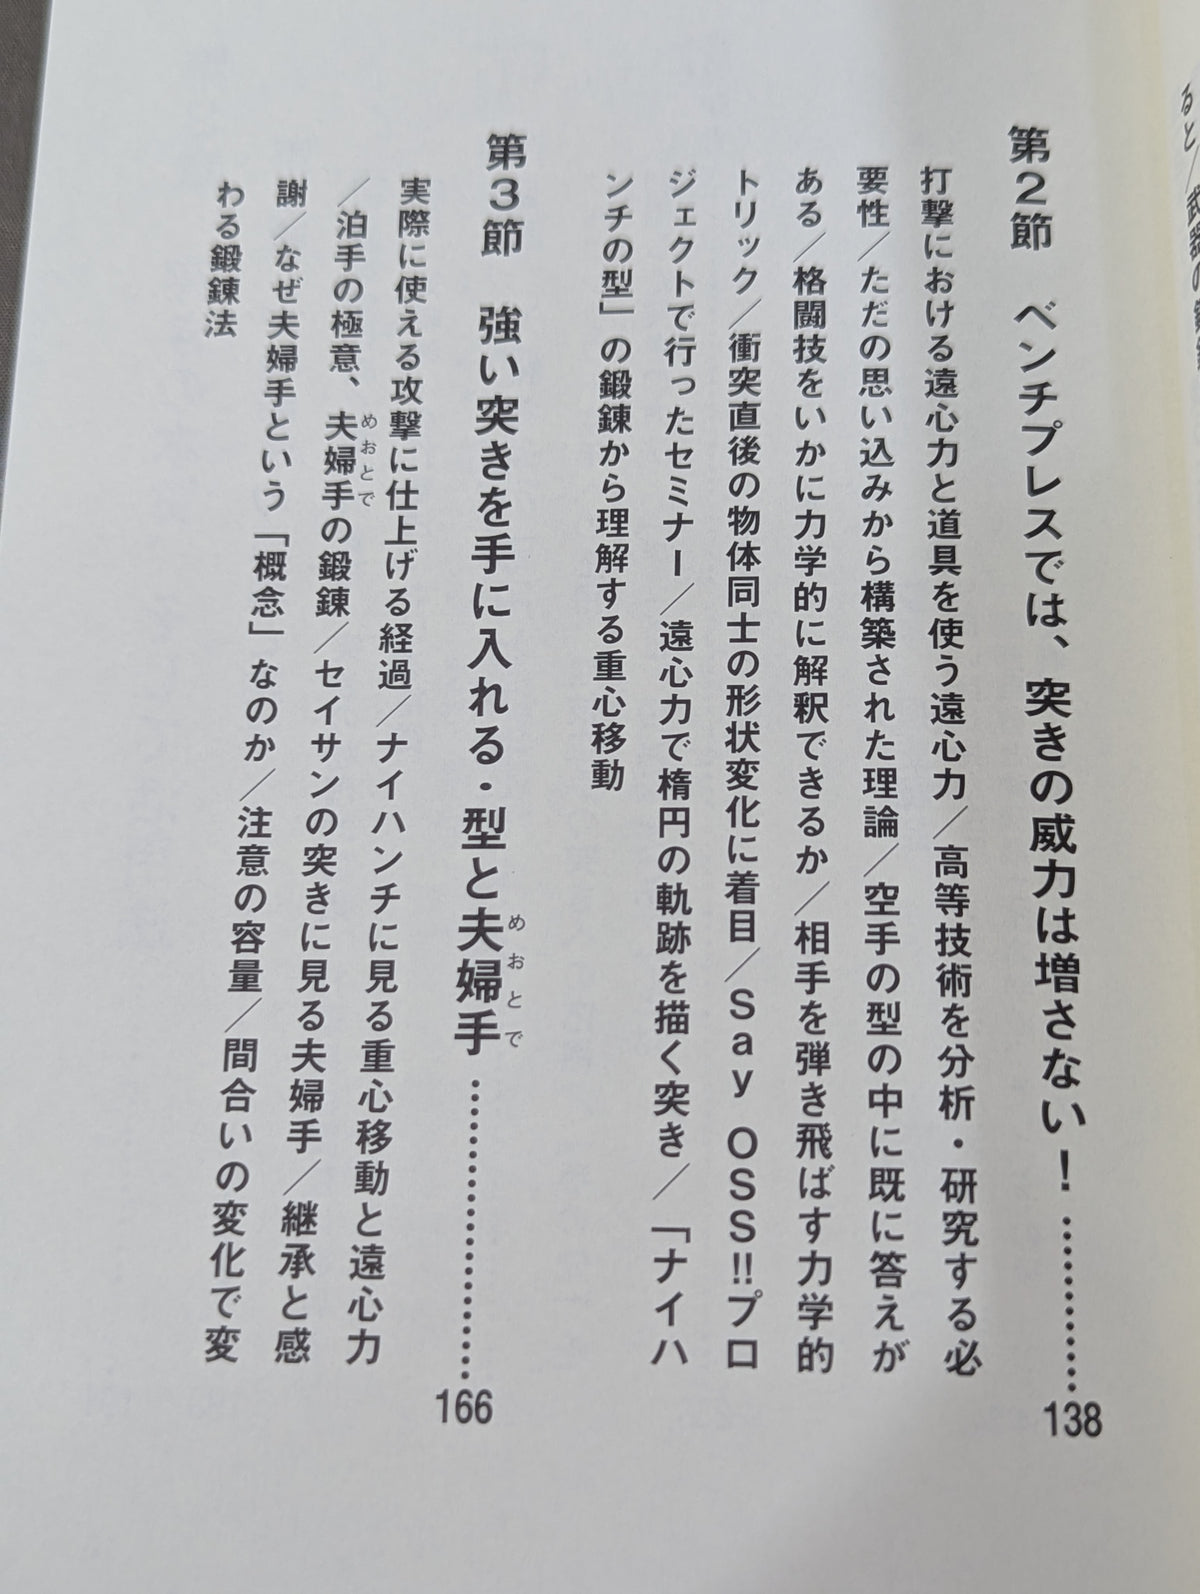 第2節　ベンチプレスでは、突きの威力は増さない！…………138
打撃における遠心力と道具を使う遠心力／高等技術を分析・研究する必
要性／ただの思い込みから構築された理論／空手の型の中に既に答えが
ある／格闘技をいかに力学的に解釈できるか／相手を弾き飛ばす力学的
トリック／衝突直後の物体同士の形状変化に着目／Say OSS!!プロ
ジェクトで行ったセミナー／遠心力で楕円の軌跡を描く突き／「ナイハ
ンチの型」の鍛錬から理解する重心移動
第3節　強い突きを手に入れる・型と夫婦手…………………166
めおとで
実際に使える攻撃に仕上げる経過／ナイハンチに見る重心移動と遠心力
／泊手の極意、夫婦手の鍛錬／セイサンの突きに見る夫婦手／継承と感
めおとで
謝／なぜ夫婦手という「概念」なのか／注意の容量／間合いの変化で変
わる鍛錬法